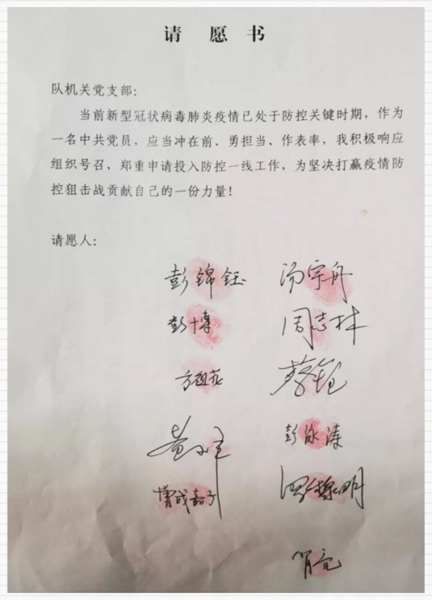 请愿书
队机关党支部：
当前新型冠状病毒肺炎疫情已处于防控关键时期，作为
一名中共党员，应当冲在前、勇担当、作表率，我积极响应
组织号召，郑重申请投入防控一线工作，为坚决打赢疫情防
控狙击战贡献自己的一份力量！
请愿人：
彭锦钰 汤宇舟
彭博 周志林
彭泳涛
肖亮